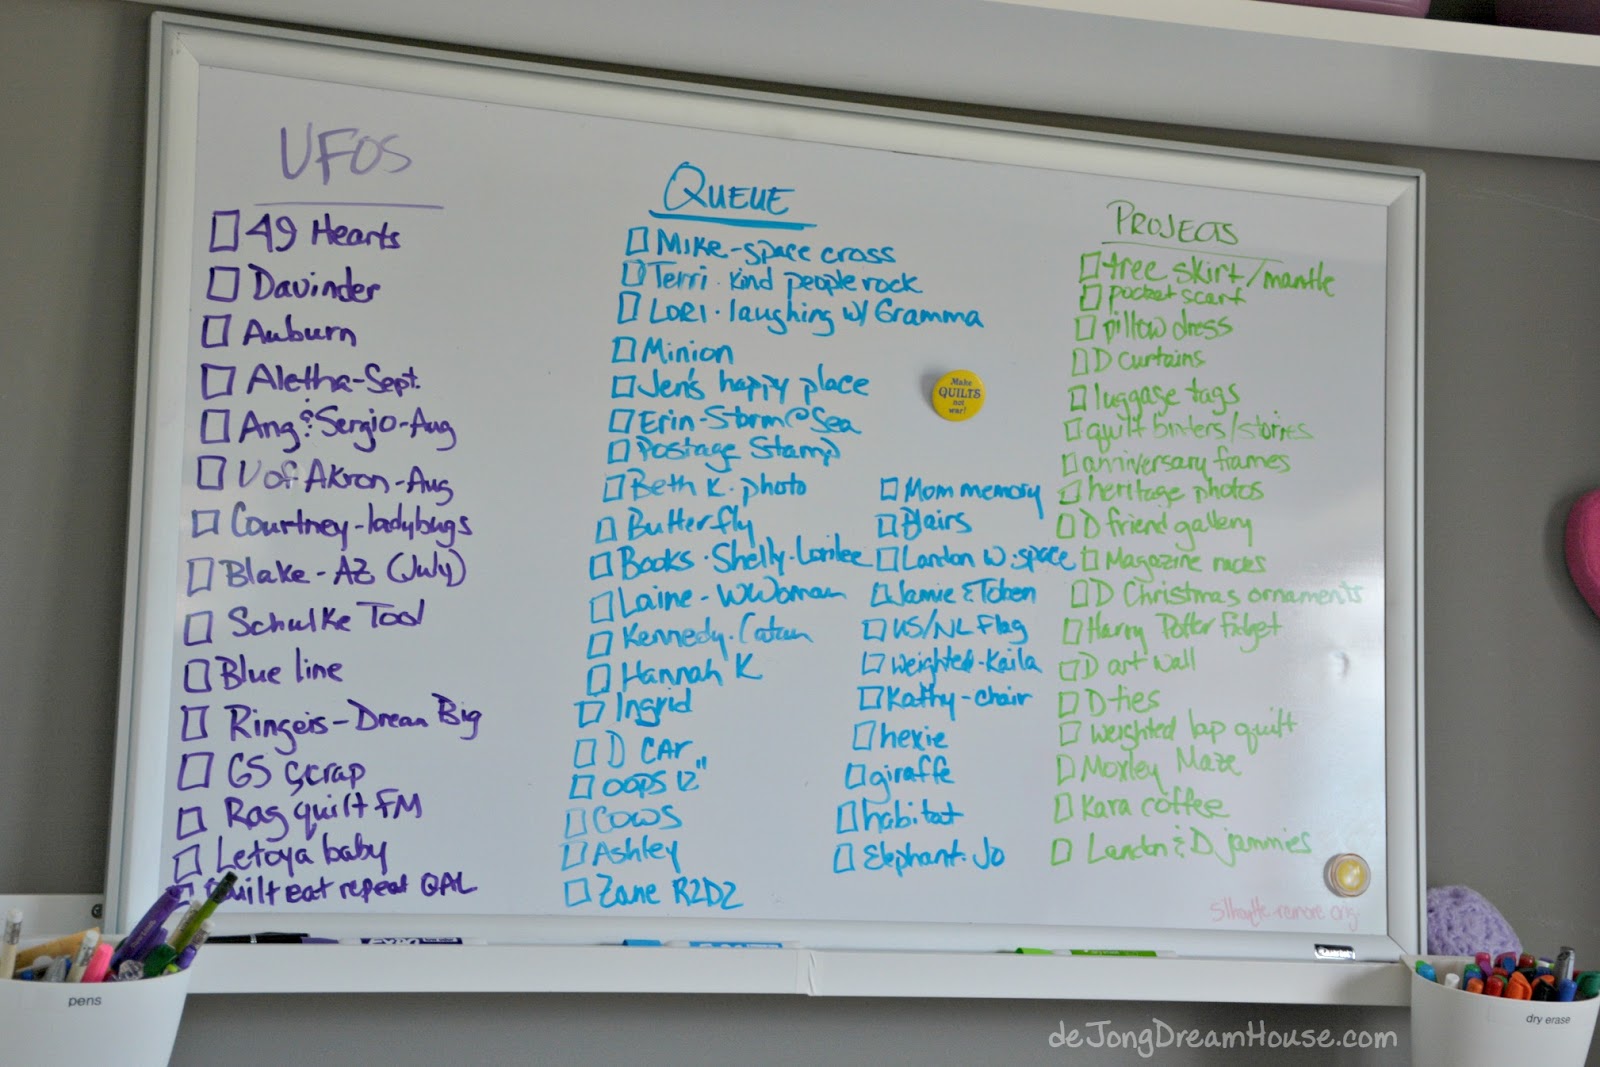 UFOS
49 Hearts
Davinder
Auburn
Aletha-Sept.
Ang & Sergio-Aug
U of Akron-Aug
Courtney-ladybugs
Blake-AZ (July)
Schulke Tool
Blue line
Ringeis-Dream Big
GS scrap
Rag quilt FM
Letoya baby
Quilt eat repeat QAL
QUEUE
MIKE-space cross
Terri. kind people rock
LORI. laughing w/ Gramma
Minion
Jen's happy place
Erin-Storm@Sea
Postage Stamp
Beth K. photo
Butterfly
Books. Shelly. Lorilee
Laine-WWoman
Kennedy. Catan
Hannah K
Ingrid
D CAR
OOPS 12"
COWS
Ashley
Zane R2D2
Mom memory
Blairs
Landon w. space
Jamie & Toben
US/NL Flag
Weighted-Kaila
Kathy-chair
hexie
giraffe
habitat
Elephant. Jo
Make
QUILTS
not
war!
PROJECTS
tree skirt/mantle
pocket scarf
pillow dress
D curtains
luggage tags
quilt binters/stories
anniversary frames
heritage photos
D friend gallery
Magazine racks
D Christmas ornaments
Harry Potter fidget
D art wall
D-ties
weighted lap quilt
Moxley Maze
Kara coffee
Landon & D jammies
remore orig.
EXPO
Quartet
pens
dry erase
deJongDreamHouse.com